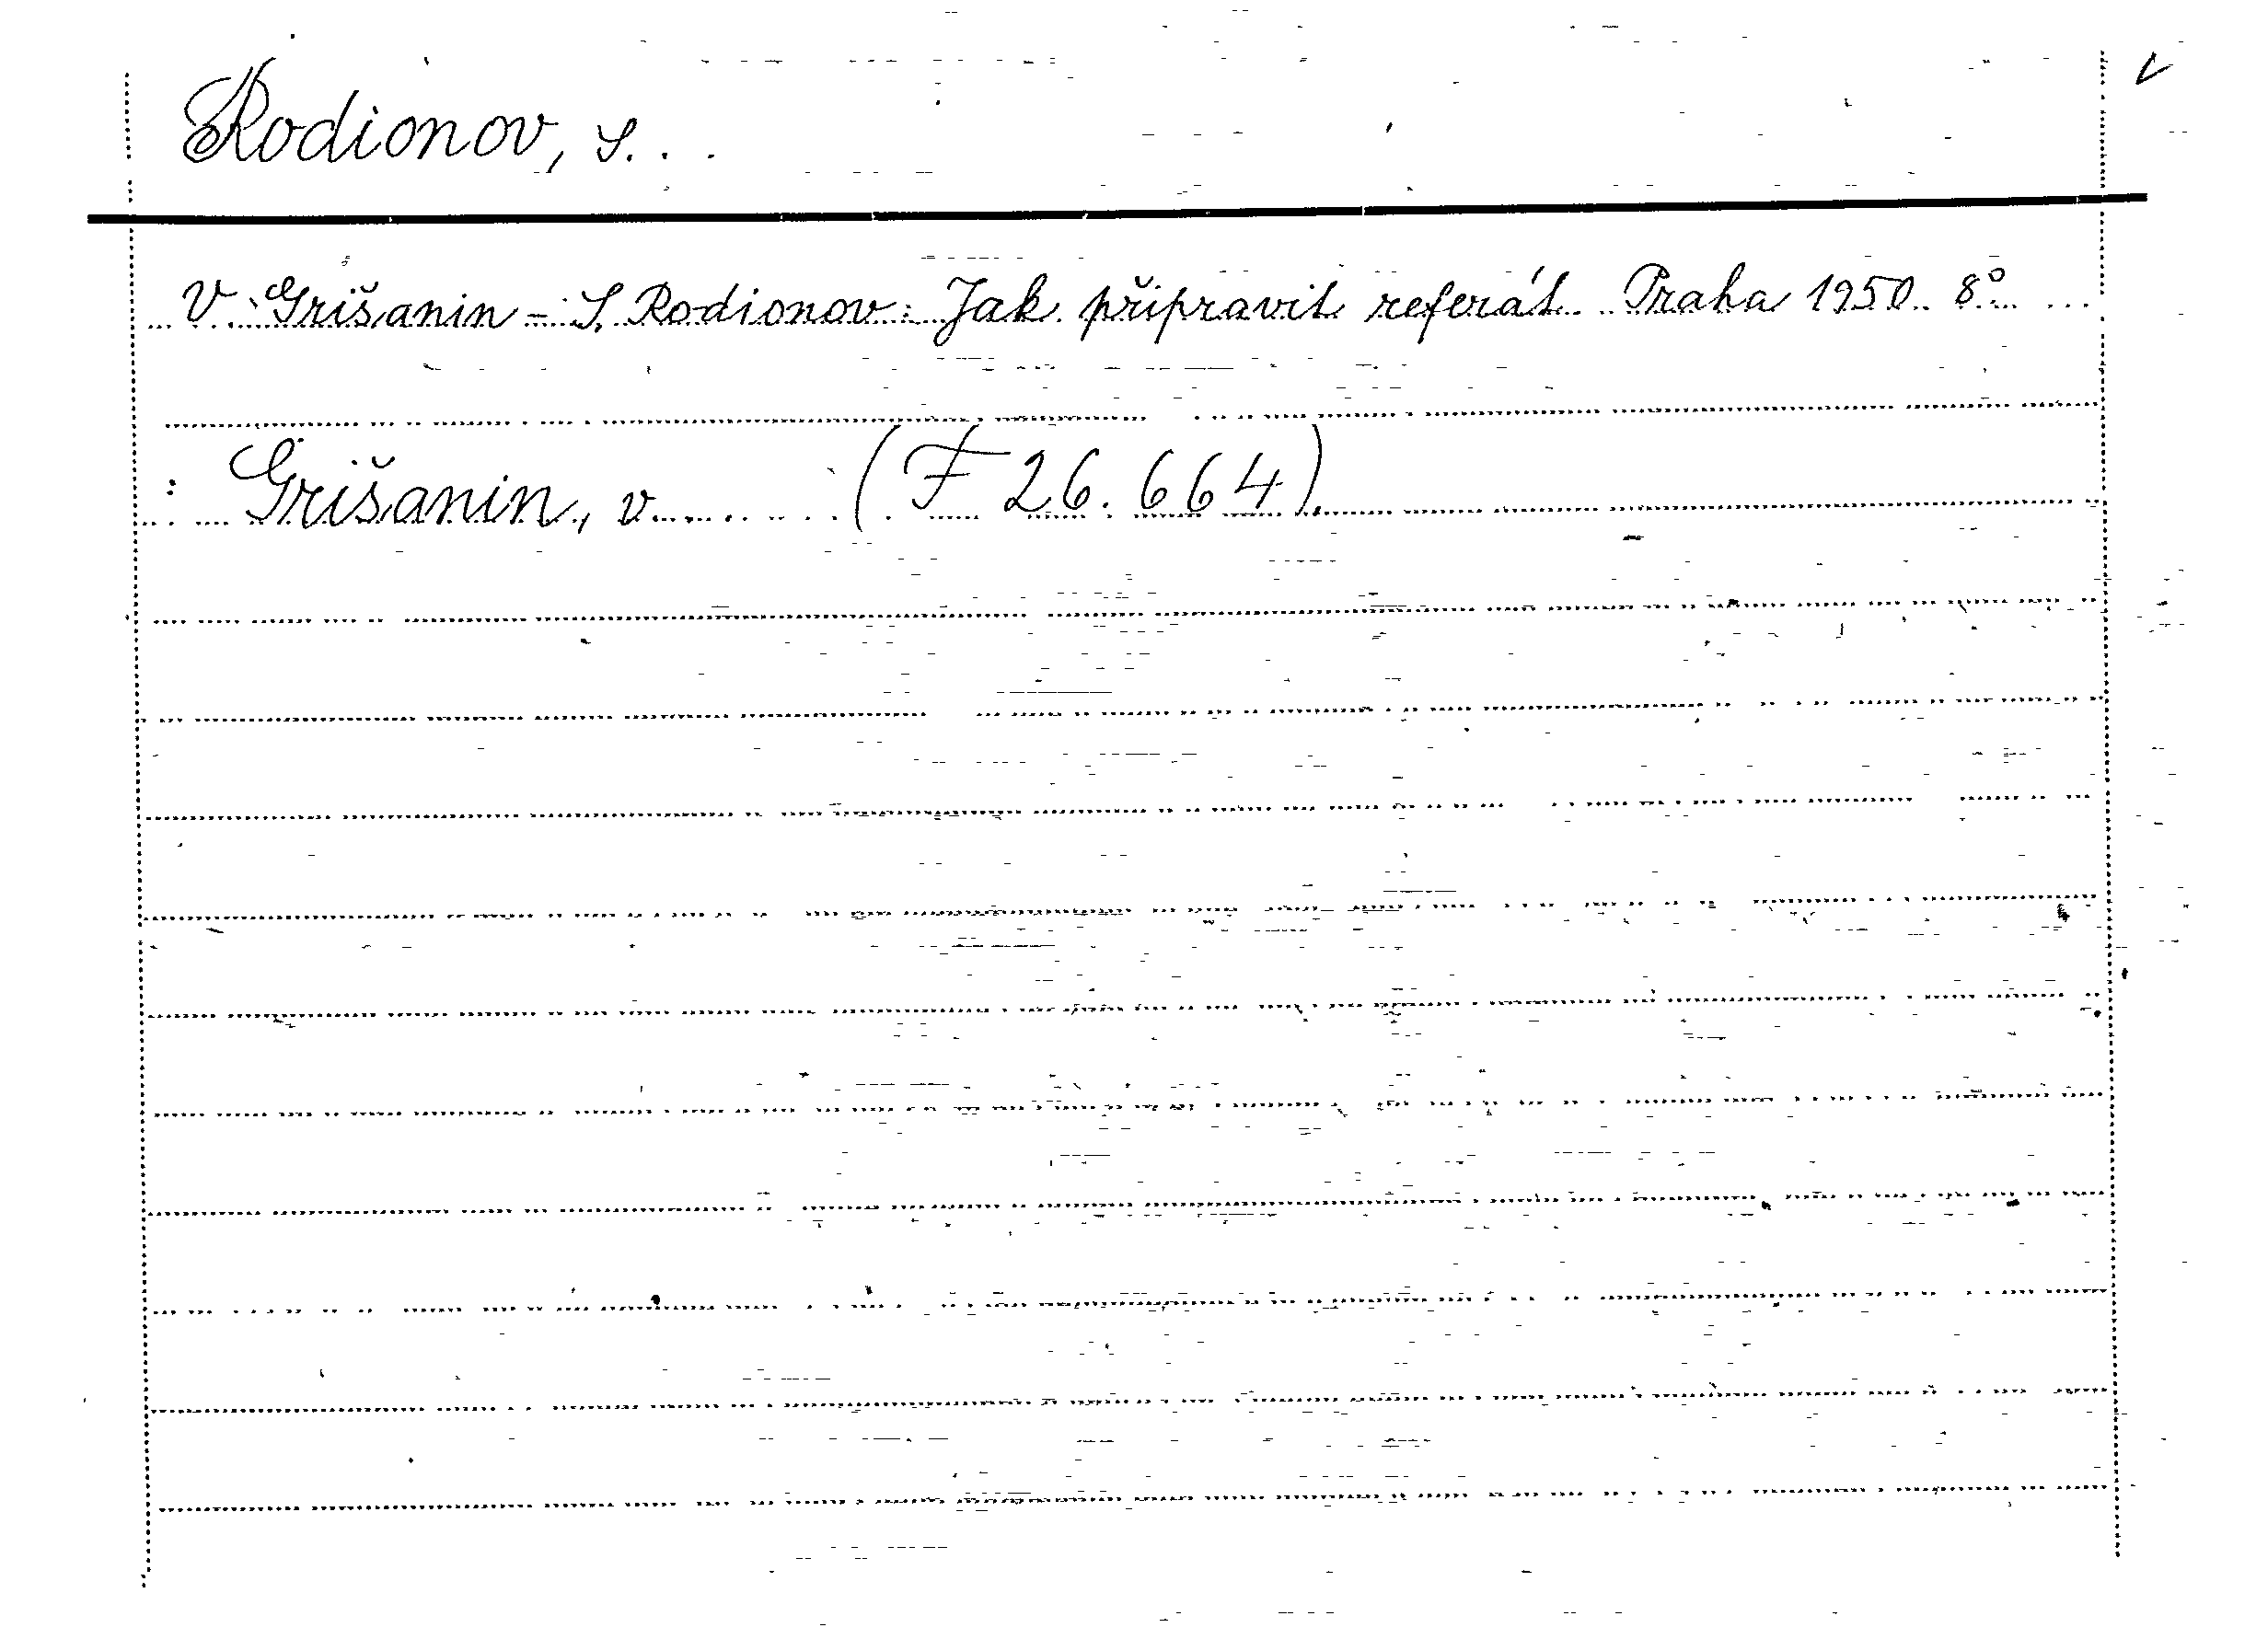 Rodionov, S...
V. Grišanin - S. Rodionov: Jak připravit referát. Praha 1950. 8°
: Grišanin, V...... (F 26.664)